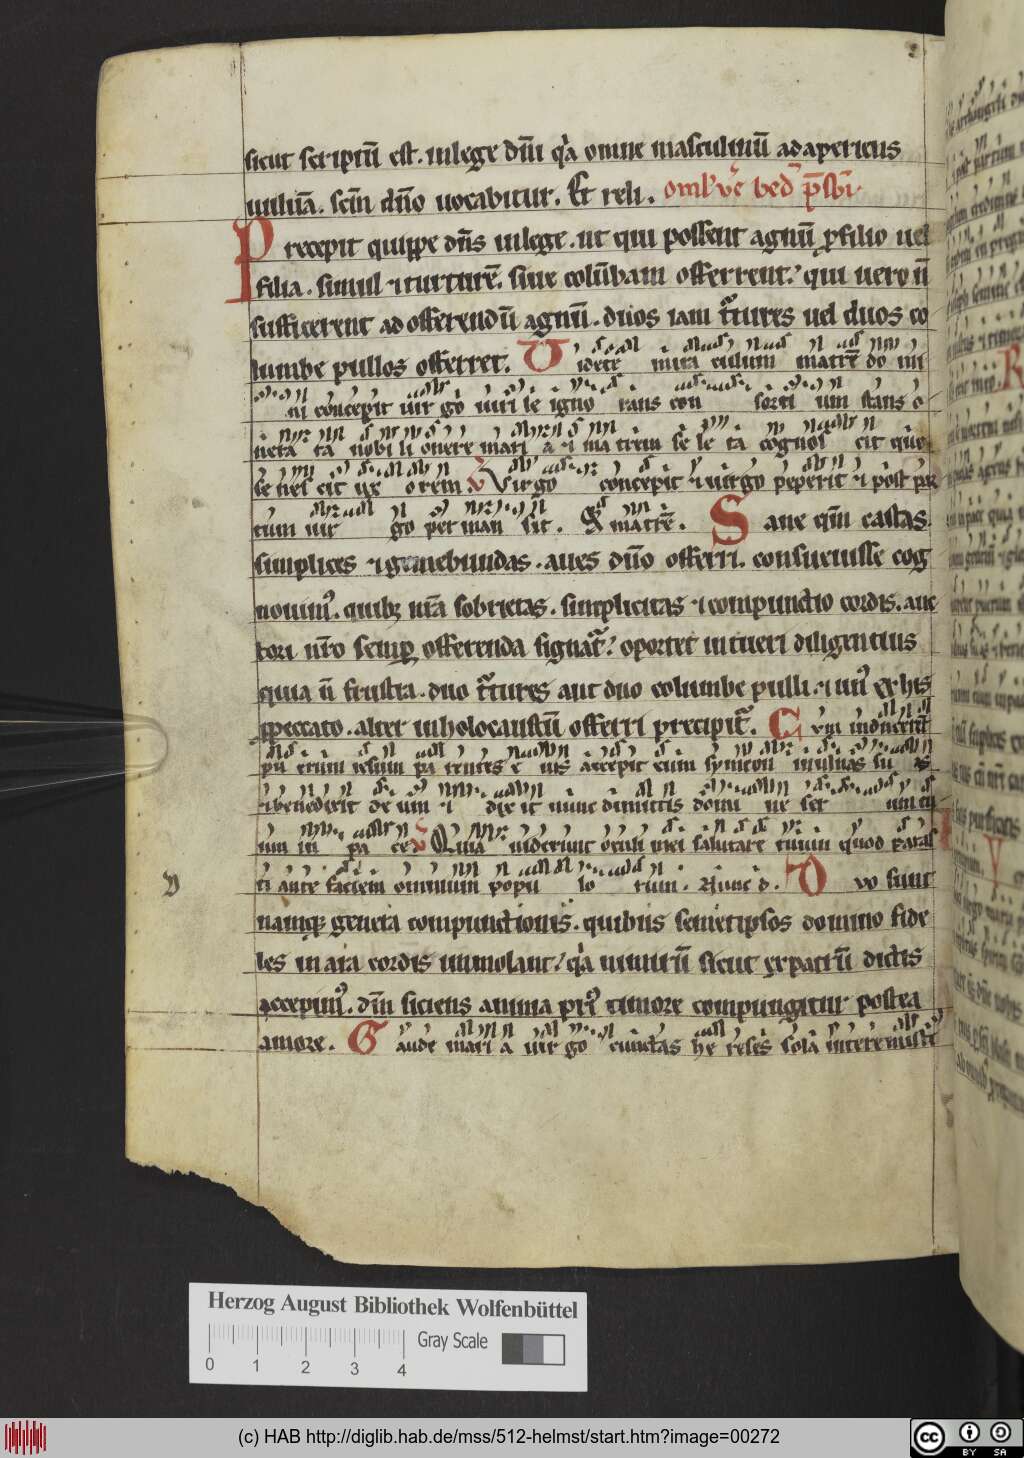 sicut scriptū est. in lege dn̄i q̇a om̄ne masculinū adaperiens
uuluā. scm̄ dn̄o uocabitur. Et reli. oml' ve bed p̄sbi
Precepit quippe dn̄s in lege. ut qui possent agnū ꝓ filio uel
filia. simul ⁊ turturē. siue colūbam offerrent. qui uero n̄
sufficerent ad offerendū agnū. duos iam t̄tures uel duos co
lumbe pullos offerret. Videte mira culum matrē do mi
ni concepit uir go uiri le igno rans con sorti um stans o
nera ta nobi li onere mari a ⁊ ma trem se le ta cognos cit que
se nes cit ux orem v Virgo concepit ⁊ uirgo peperit ⁊ post par
tum uir go per man sit. & matrē. Sane qm̄ castas
simplices ⁊ gemebundas. aues dn̄o offerri. consueuisse cog
nouim'. quibꝫ nr̄a sobrietas. simplicitas ⁊ compunctio cordis. auc
tori nr̄o semꝑ offerenda signat'. oportet intueri diligentius
quia n̄ frustra. duo t̄tures aut duo columbe pulli. ⁊ un' ex his
ꝓ peccato. alter in holocaustū offerri precipit'. Cvm inducerēt
pu erum iesum pa rentes e ius accepit eum symeon in ulnas su as
⁊ benedixit de um ⁊ dix it nunc dimittis domi ne ser uum tu
um in pa ce v Quia uiderunt oculi mei salutare tuum quod paras
ti ante faciem omnium popu lo rum. Nunc d. Dvo sunt
namqꝫ genera compunctionis. quibus semetipsos domino fide
les in ara cordis immolant. q̇a nimirū sicut ex patrū dictis
accepim'. dm̄ siciens anima pri' timore compungitur postea
amore. Gaude mari a uir go cunctas he reses sola interemisti
D
Herzog August Bibliothek Wolfenbüttel
Gray Scale
0 1 2 3 4
(c) HAB http://diglib.hab.de/mss/512-helmst/start.htm?image=00272
cc BY SA